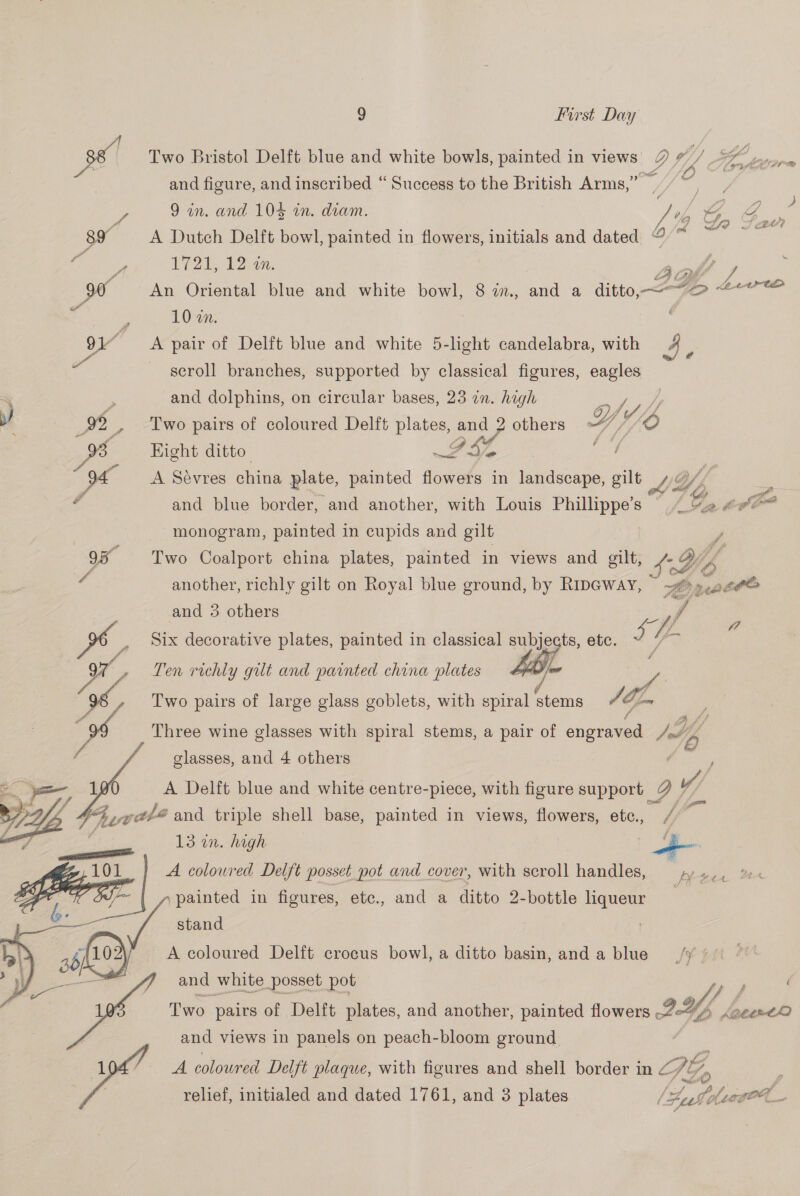 9 First Day
88 Two Bristol Delft blue and white bowls, painted in views
and figure, and inscribed “Success to the British Arms,”
9 in. and 10½ in. diam.
89 A Dutch Delft bowl, painted in flowers, initials and dated
1721, 12 in.
90 An Oriental blue and white bowl, 8 in., and a ditto,
10 in.
91 A pair of Delft blue and white 5-light candelabra, with
scroll branches, supported by classical figures, eagles
and dolphins, on circular bases, 23 in. high
92 Two pairs of coloured Delft plates, and 2 others
93 Eight ditto
94 A Sèvres china plate, painted flowers in landscape, gilt
and blue border, and another, with Louis Phillippe's
monogram, painted in cupids and gilt
95 Two Coalport china plates, painted in views and gilt,
another, richly gilt on Royal blue ground, by RIDGWAY,
and 3 others
96 Six decorative plates, painted in classical subjects, etc.
97 Ten richly gilt and painted china plates
98 Two pairs of large glass goblets, with spiral stems
99 Three wine glasses with spiral stems, a pair of engraved
glasses, and 4 others
100 A Delft blue and white centre-piece, with figure support
and triple shell base, painted in views, flowers, etc.,
13 in. high
101 A coloured Delft posset pot and cover, with scroll handles,
painted in figures, etc., and a ditto 2-bottle liqueur
stand
102 A coloured Delft crocus bowl, a ditto basin, and a blue
and white posset pot
103 Two pairs of Delft plates, and another, painted flowers
and views in panels on peach-bloom ground
104 A coloured Delft plaque, with figures and shell border in
relief, initialed and dated 1761, and 3 plates